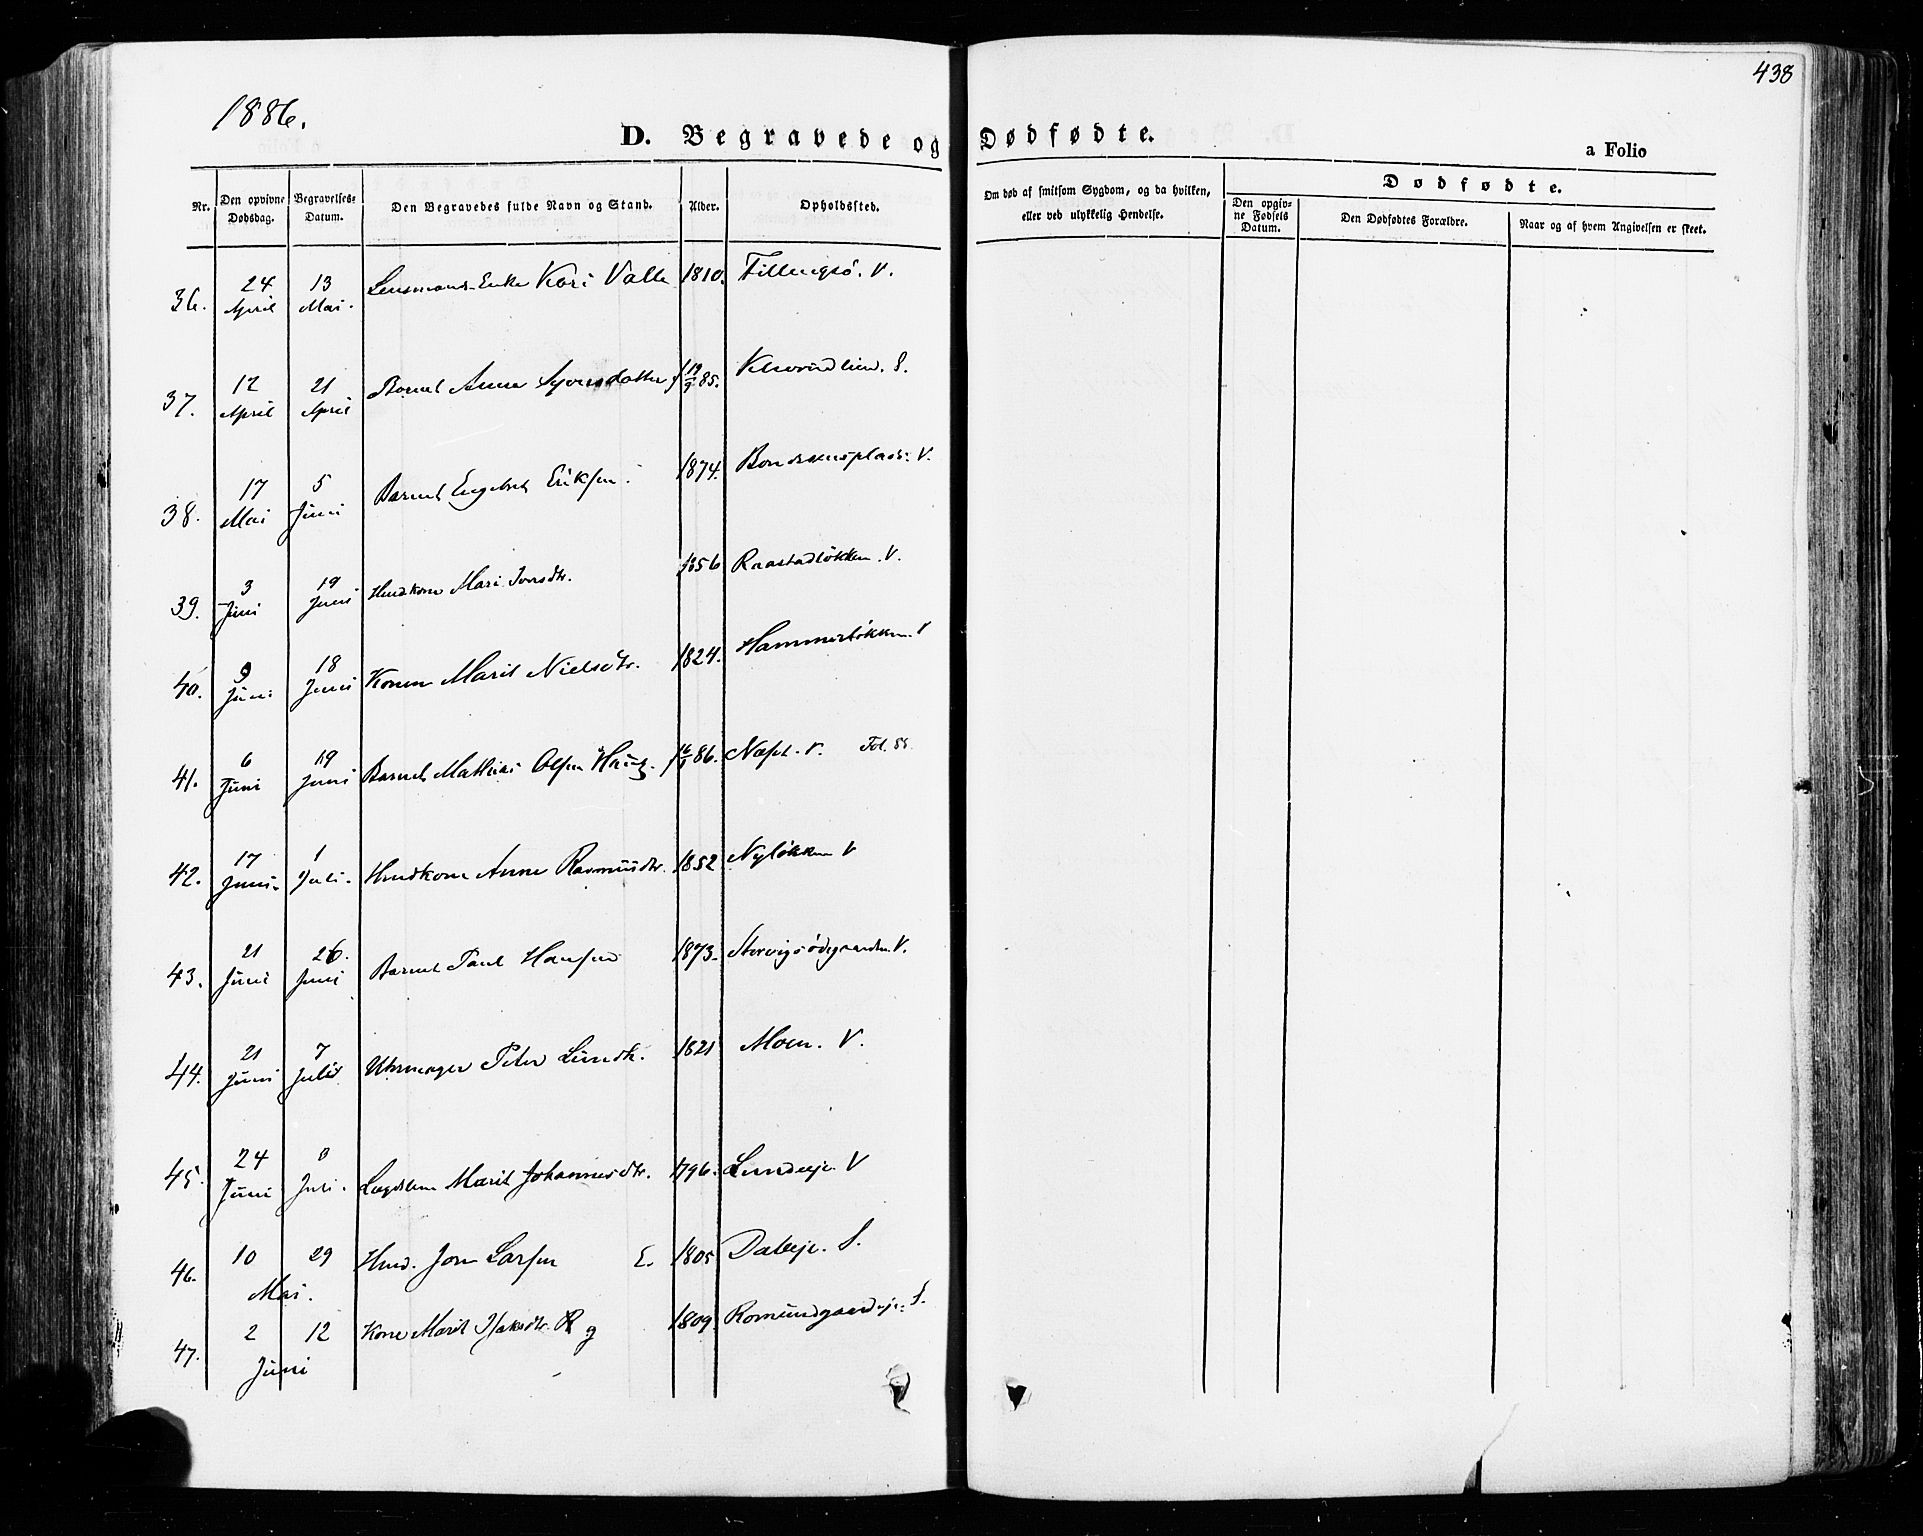 438
1886.
D. Begravede og Dødfødte.
a Folio
Nr. Den opgivne Dødsdag. Begravelses-Datum. Den Begravedes fulde Navn og Stand. Alder. Opholdssted. Om død af smitsom Sygdom, og da hvilken, eller ved ulykkelig Hendelse. Dødfødte.
Den opgivne Fødsels Datum. Den Dødfødtes Forældre. Naar og af hvem Angivelsen er skeet.
36. 24 April 13 Mai. Lensmans-Enke Kari Valle 1810. V.
37. 12 April 21 April Barnet Anne Syversdatter f 85. S.
38. 17 Mai 5 Juni Barnet Engebret Eriksen 1874. V.
39. 3 Juni 19 Juni Huskone Mari Iversdtr. 1856 Raastadløkken. V.
40. 9 Juni 18 Juni Konen Marit Nielsdtr. 1824. Hammerløkken. V
41. 6 Juni 19 Juni Barnet Mathias Olsen Haug. f 86. Næset. V. Fol. 55.
42. 17 Juni. 1 Juli. Huskone Anne Rasmusdtr. 1852 Nyløkken V
43. 21 Juni 26. Juni Barnet Paul Hansen 1873. Storvigsødegaarden. V.
44. 21 Juni 7 Juli Uhrmager Peter Lundh. 1821 Moen. V.
45. 24 Juni Juli. Lægdslem Marit Johannesdtr. 1796. Lundeeje V
46. 10 29 Mai. Husd. Jon Larsen E. 1805 Daleeje. S.
47. 2 12 Juni Kone Marit Isaksdtr. R g 1809 Romundgaardseje. S.